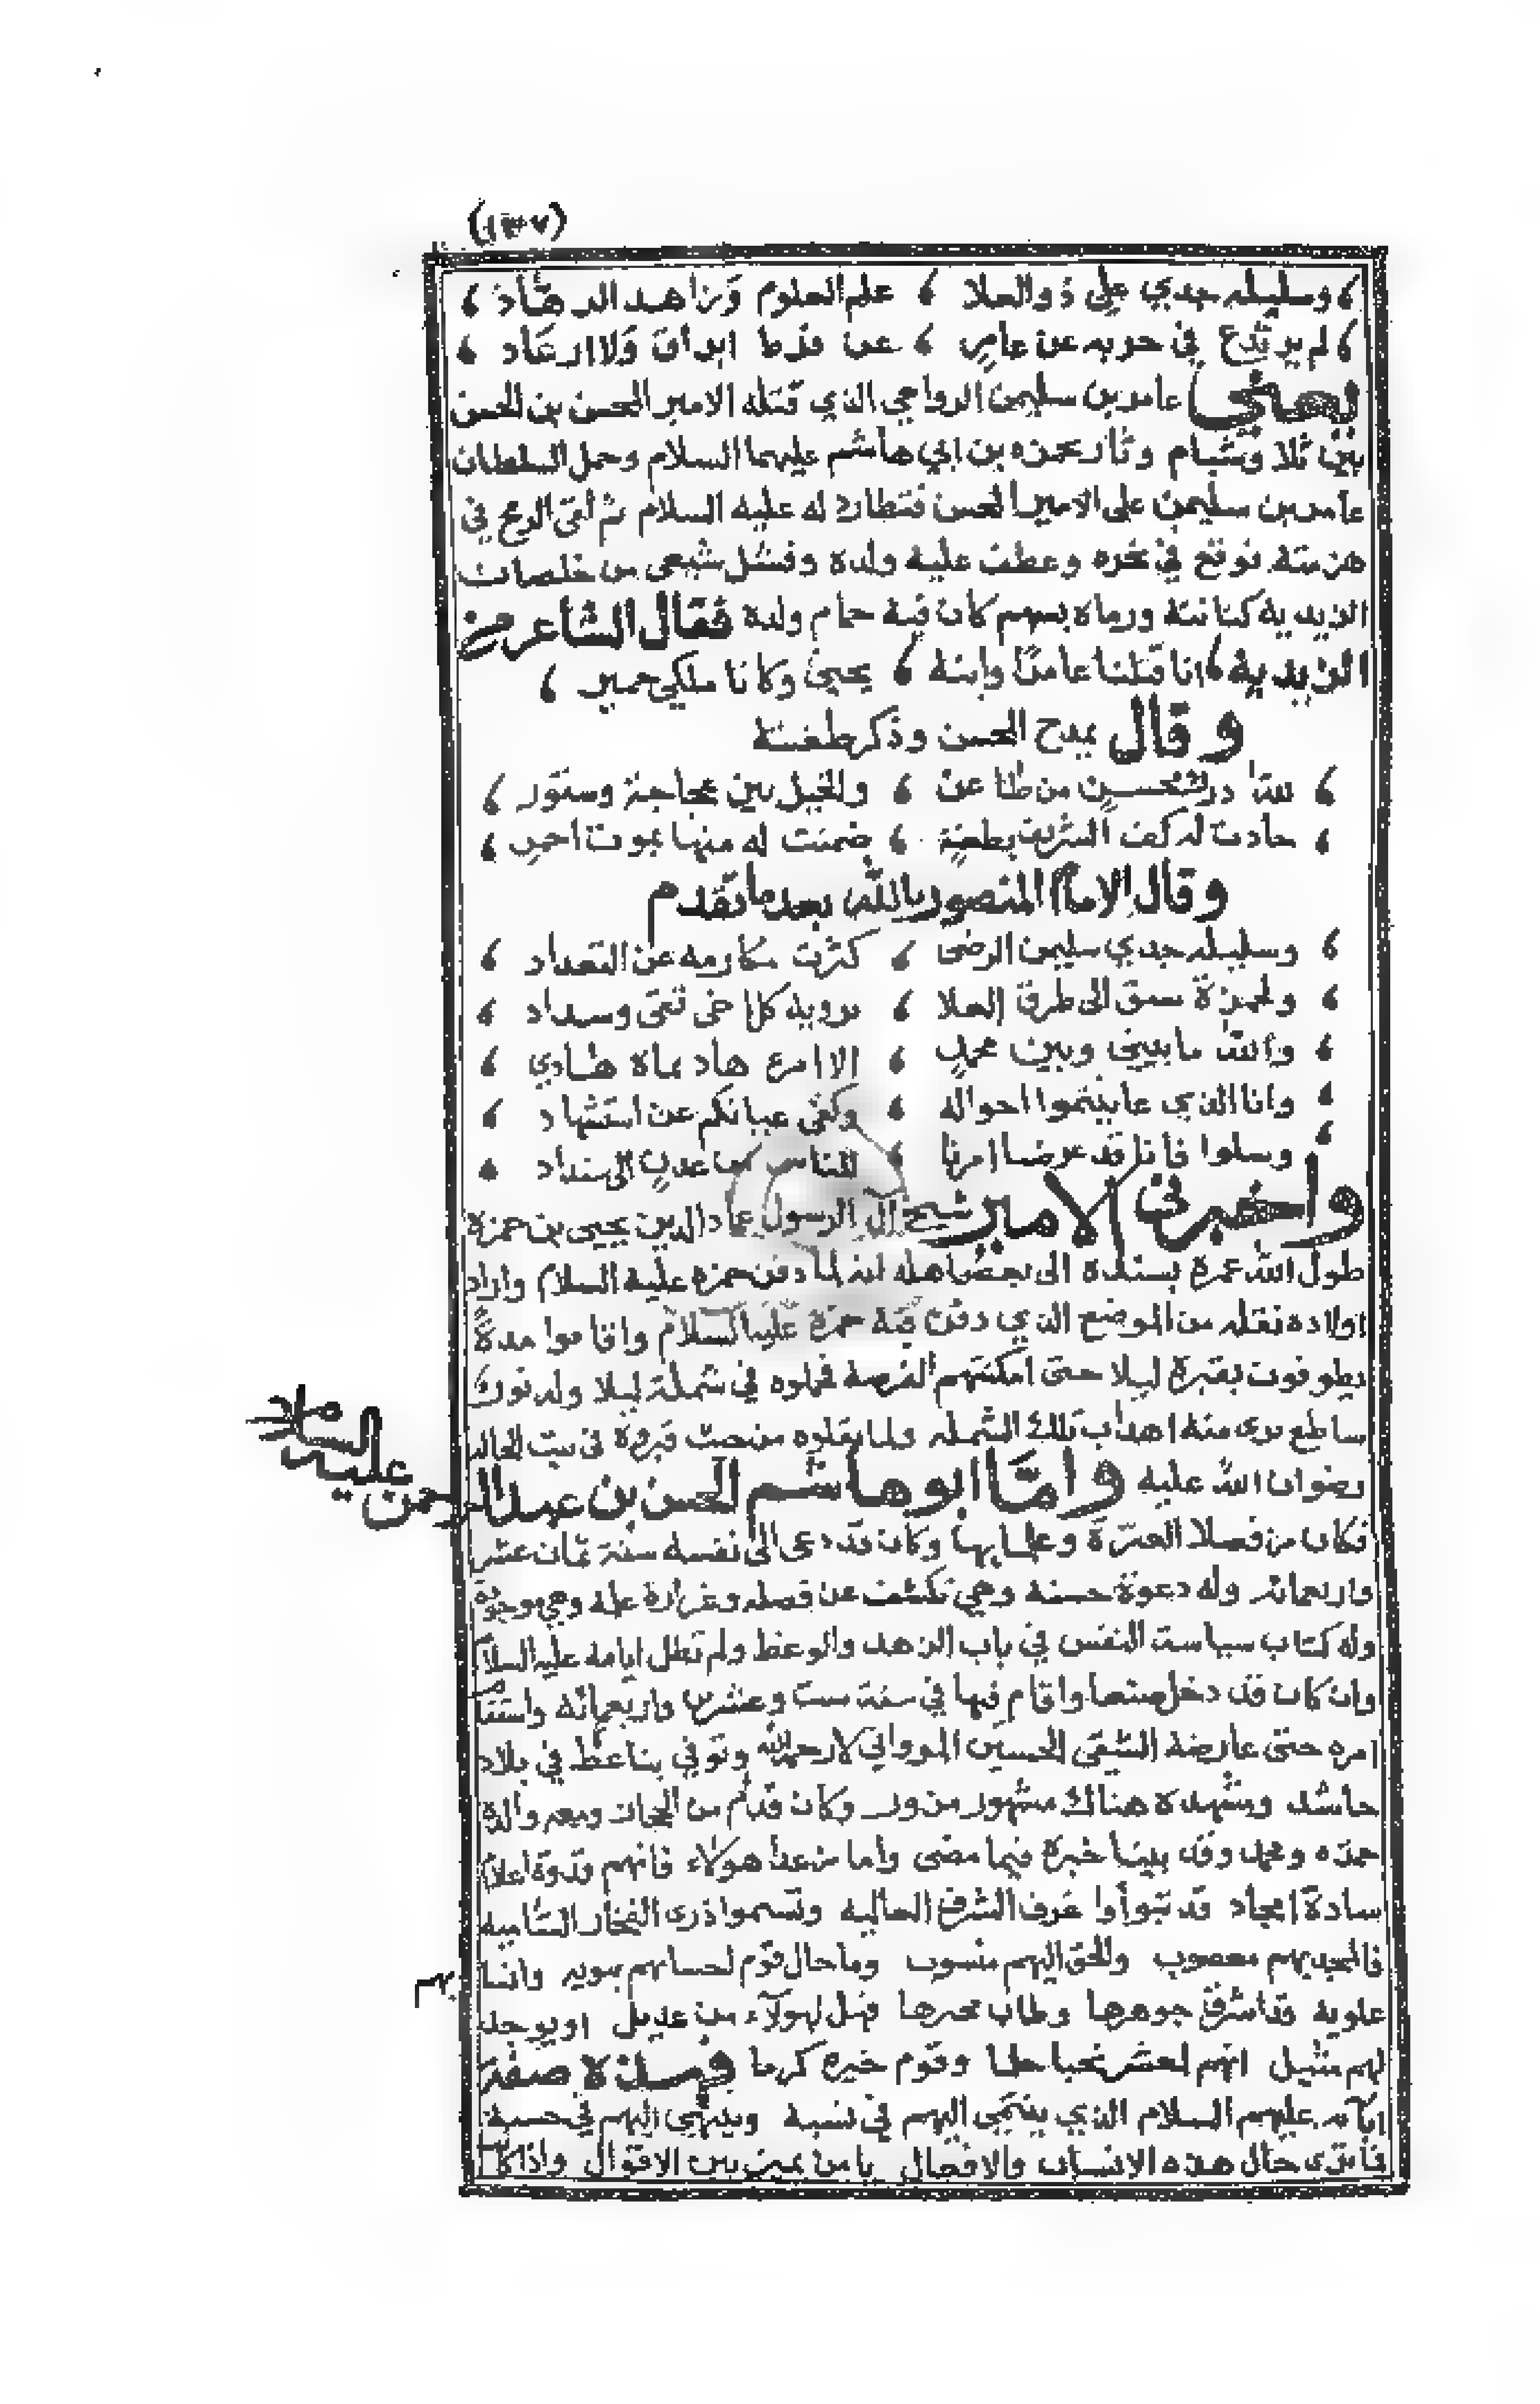 (١٣٧)
وسليله جدي علي ذو العلا ، علم العلوم وزاهد الزهاد
لم يرتدع في حربه عن عامر ، عن فرط ابراق ولا ارعاد
يعني عامر بن سليمن الرواحي الذي قتله الامير المحسن بن الحسن
بين ثلا وشبام وثار بحمزه بن ابي هاشم عليهما السلام وحمل السلطان
عامر بن سليمن على الامير المحسن فتطارد له عليه السلام ثم لقى الرمح في
هزيمته فوقع في نحره وعطف عليه ولده وفشل شيعي من خلصان
الزيديه كنانته ورماه بسهم كان فيه حمام ولده فقال الشاعر من
الزيدية ، انا قتلنا عامرا وابنه ، يحيى وكانا ملكي حمير ،
وقال يمدح المحسن وذكر طعنته
لله در محسن من طاعن ، والخيل بين عجاجة وسنور
جادت له كف الشريف بطعنة ، ضمنت له منها بموت احمر
وقال الامام المنصور بالله بعد ما تقدم
وسليله جدي سليمن الرضى ، كثرت مكارمه عن التعداد
ولحمزة سبق الى طرق العلا ، يرويه كل اخي تقى وسداد
والله ما بيني وبين محمد ، الا امرء هاد نماه هادي
وانا الذي عاينتموا احواله ، وكفى عيانكم عن استشهاد
وسلوا فانا قد عرضنا امرنا ، للناس من عدن الى سنداد
واخبرني الامير شيخ آل الرسول عماد الدين يحيى بن حمزة
طول الله عمره بسنده الى بعض اهله انه لما دفن حمزه عليه السلام واراد
اولاده نقله من الموضع الذي دفن فيه حمزة عليه السلام واقاموا مدة
يطوفون بقبرة ليلا حتى امكنتهم الفرصة فحملوه في شملة ليلا وله نور
ساطع يرى منه اهداب تلك الشمله ولما نقلوه من حيث قبروه في بيت الجالد
رضوان الله عليه واما ابو هاشم الحسن بن عبد الرحمن عليه السلام
فكان من فضلا العترة وعلمايها وكان قد دعى الى نفسه سنة ثمان عشر
واربعمائه وله دعوة حسنة وهي تكشف عن فضله وغزارة علمه وهي موجوده
وله كتاب سياسة النفس في باب الزهد والوعظ ولم تطل ايامه عليه السلام
وان كان قد دخل صنعا واقام فيها في سنة ست وعشرين واربعمائه واستقام
امره حتى عارضه الشقي الحسين المرواني لا رحمه الله وتوفي بناعط في بلاد
حاشد ومشهده هناك مشهور مزور وكان قدم من الحجاز ومعه والده
حمزه ومحمد وقد بينا خبرة فيما مضى واما من عدا هولاء فانهم قدوة اعلام
سادة امجاد قد تبوأوا غرف الشرف العاليه وتسموا ذرى الفخار الساميه
فالمجد بهم معصوب والحق اليهم منسوب وما حال قوم احسابهم نبويه وانسابهم
علوية قد اشرق جوهرها وطاب نجرها فهل لهولآء من عديل او يوجد
لهم مثيل انهم لمعشر نجبا حلما وقوم خيره كرما فهذه صفة
ابآئه عليهم السلام الذي ينتمي اليهم في نسبه وينتهي اليهم في حسبه
فاترى حال هذه الانساب والافعال يا من يميز بين الاقوال واذا كان